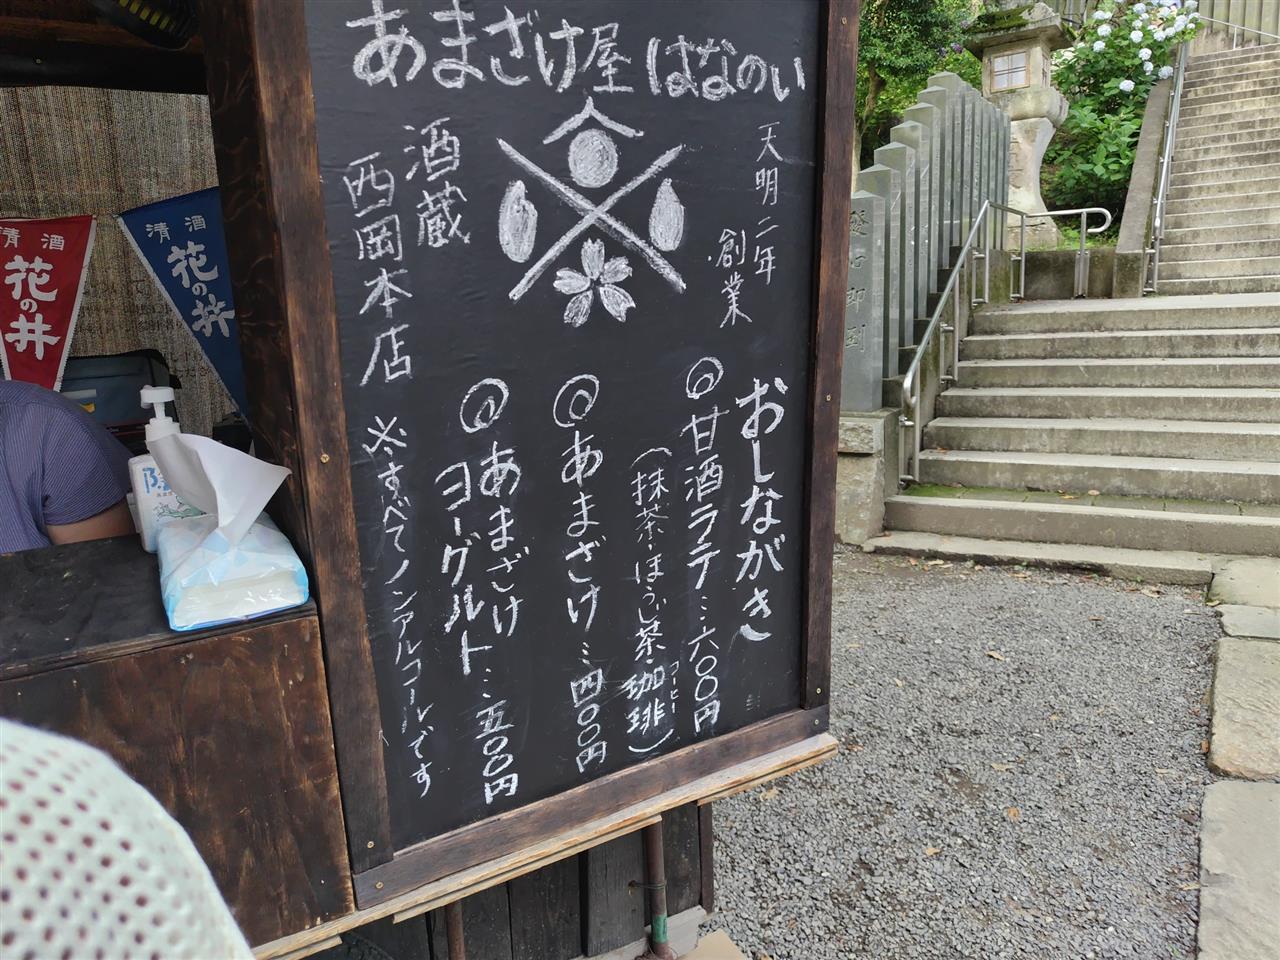 あまざけ屋はなのい
天明二年
創業
酒蔵
西岡本店
おしながき
◎甘酒ラテ…六〇〇円
(抹茶・ほうじ茶・珈琲)
コーヒー
◎あまざけ…四〇〇円
◎あまざけ
ヨーグルト…五〇〇円
※すべてノンアルコールです
清酒
花の井
清酒
花の井
除